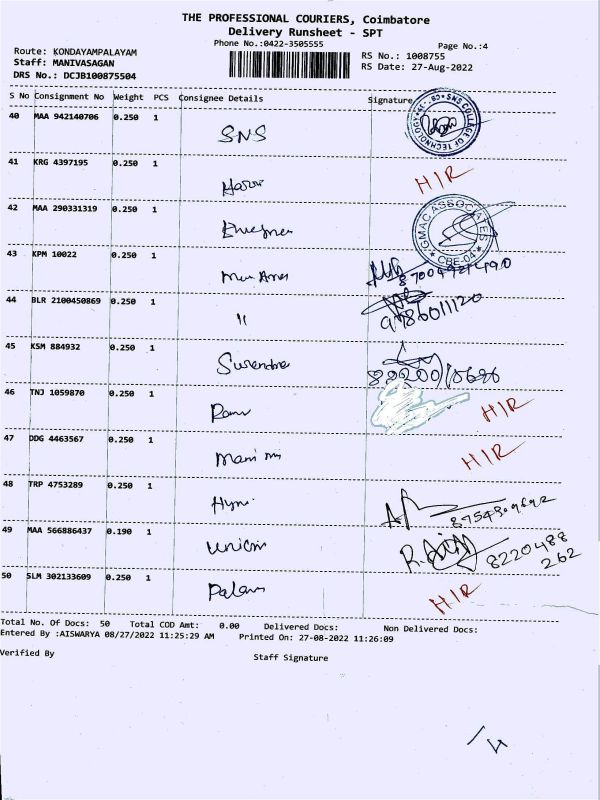 THE PROFESSIONAL COURIERS, Coimbatore
Delivery Runsheet - SPT
Phone No.:0422-3505555
Page No.:4
Route: KONDAYAMPALAYAM
RS No.: 1008755
Staff: MANIVASAGAN
RS Date: 27-Aug-2022
DRS No.: DCJB100875504
S No Consignment No Weight PCS Consignee Details Signature
40 MAA 942140706 0.250 1
SNS
SNS COLLEGE OF TECHNOLOGY
41 KRG 4397195 0.250 1
HIR
42 MAA 290331319 0.250 1
GMAC ASSOCIATES
* CBE-04 *
43 KPM 10022 0.250 1
44 BLR 2100450869 0.250 1
"
9786011120
45 KSM 884932 0.250 1
Surendra
46 TNJ 1059870 0.250 1
HIR
47 DDG 4463567 0.250 1
HIR
48 TRP 4753289 0.250 1
49 MAA 566886437 0.190 1
8220488
262
50 SLM 302133609 0.250 1
HIR
Total No. Of Docs: 50 Total COD Amt: 0.00 Delivered Docs: Non Delivered Docs:
Entered By :AISWARYA 08/27/2022 11:25:29 AM Printed On: 27-08-2022 11:26:09
Verified By
Staff Signature